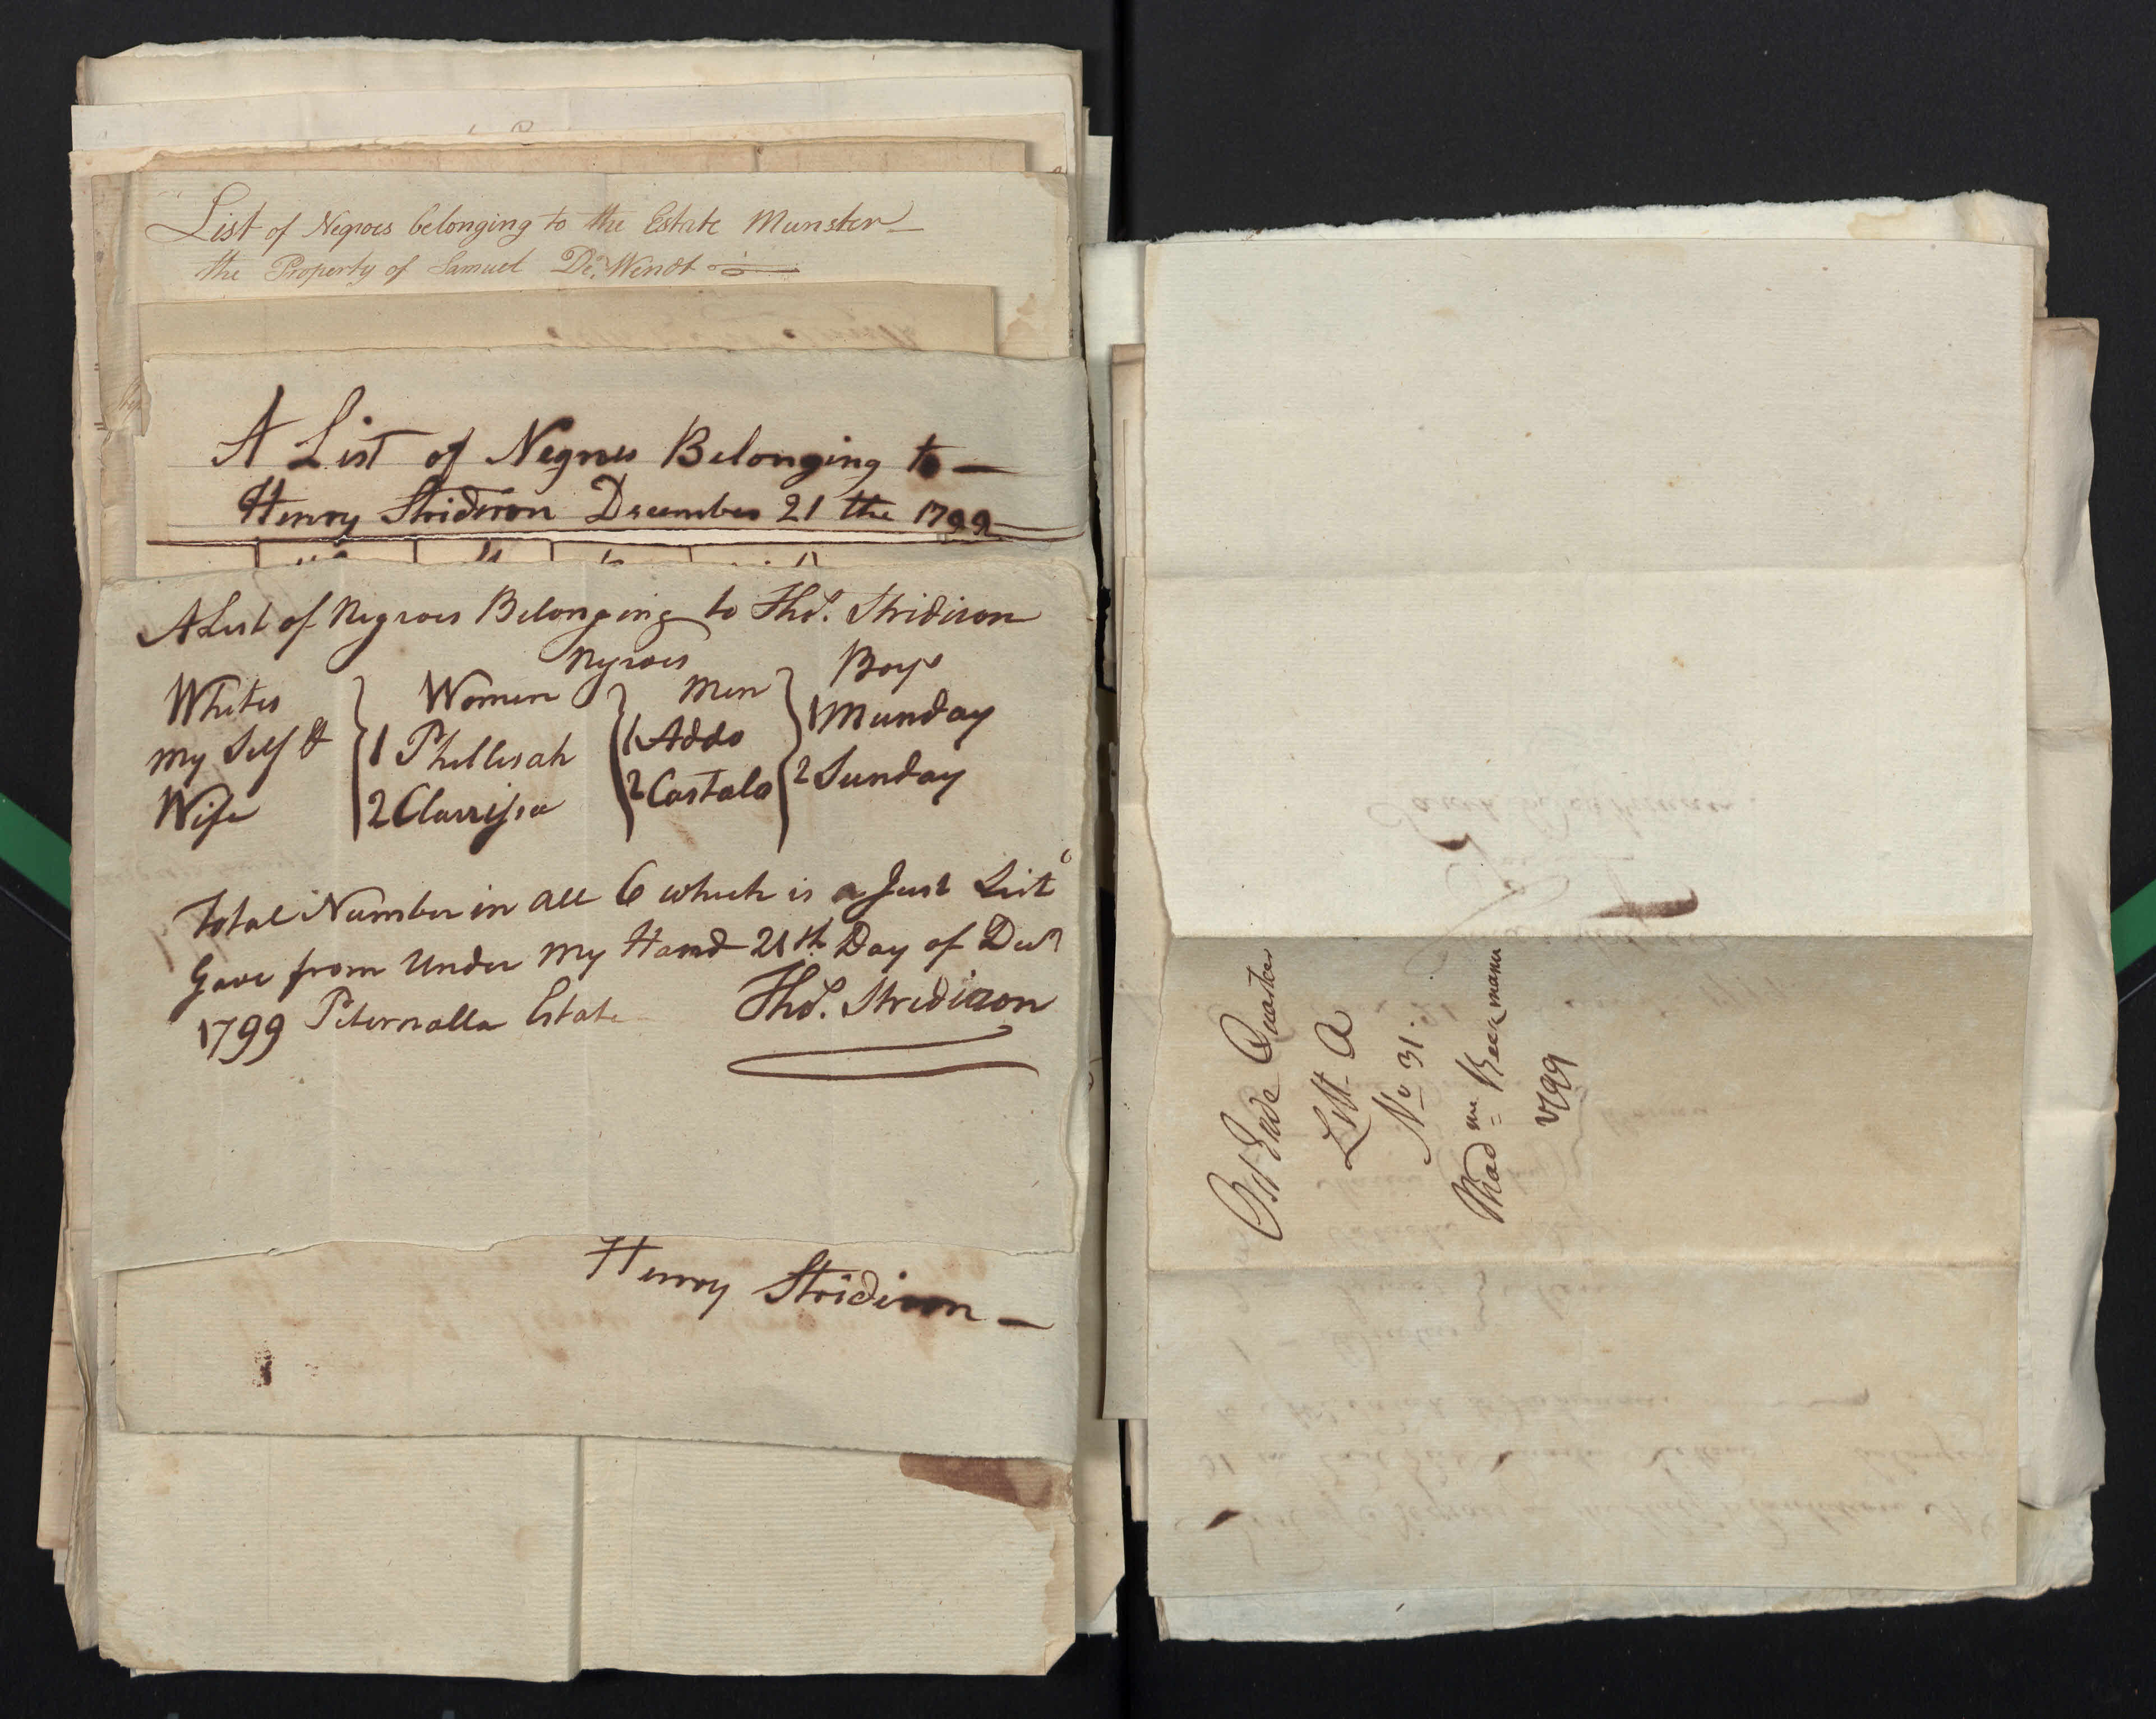 List of Negroes belonging to the Estate Munster
the Property of Samuel De Windt
A List of Negroes Belonging to —
Henry Stridiron December 21 the 1799
A List of Negroes Belonging to Thos. Stridiron
Negroes
Whites } Women } Men } Boys
My Self & { 1 Phillisah { 1 Addo } 1 Munday
Wife { 2 Clarrissa { 2 Castalo { 2 Sunday
Total Number in all 6 which is a Just List
Gave from Under My Hand 21th Day of Decr
1799 Peternalla Estate Thos. Stridiron
Henry Stridiron —
Ost Ende Quarter
Litt A
No 31.
Madme Beermann
1799